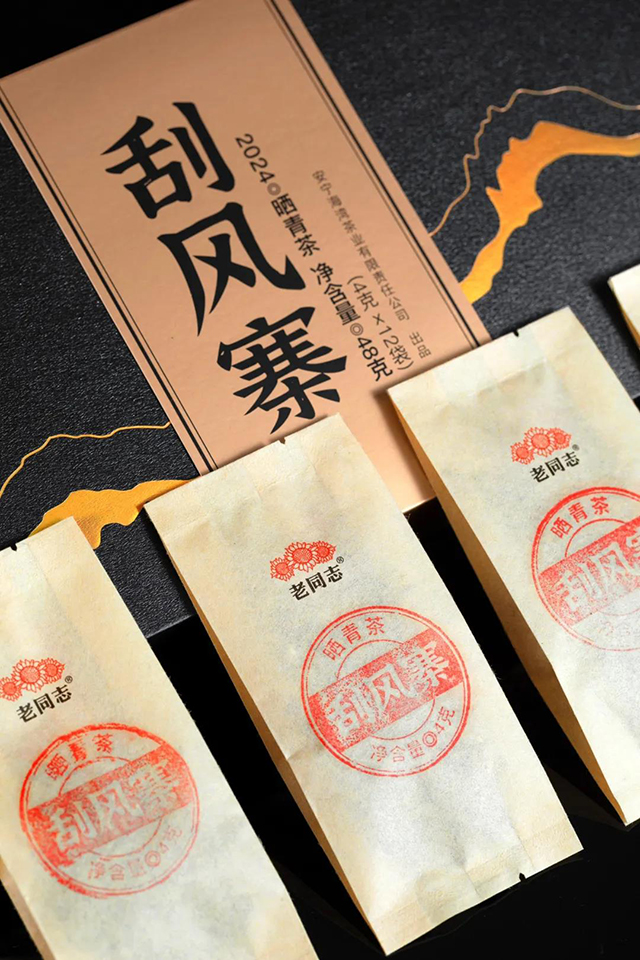 刮风寨
2024◎晒青茶 净含量◎48克
(4克×12袋)
安宁海湾茶业有限责任公司 出品
老同志®
晒青茶
刮风寨
净含量◎4克
老同志®
晒青茶
刮风寨
净含量◎4克
老同志®
晒青茶
刮风寨